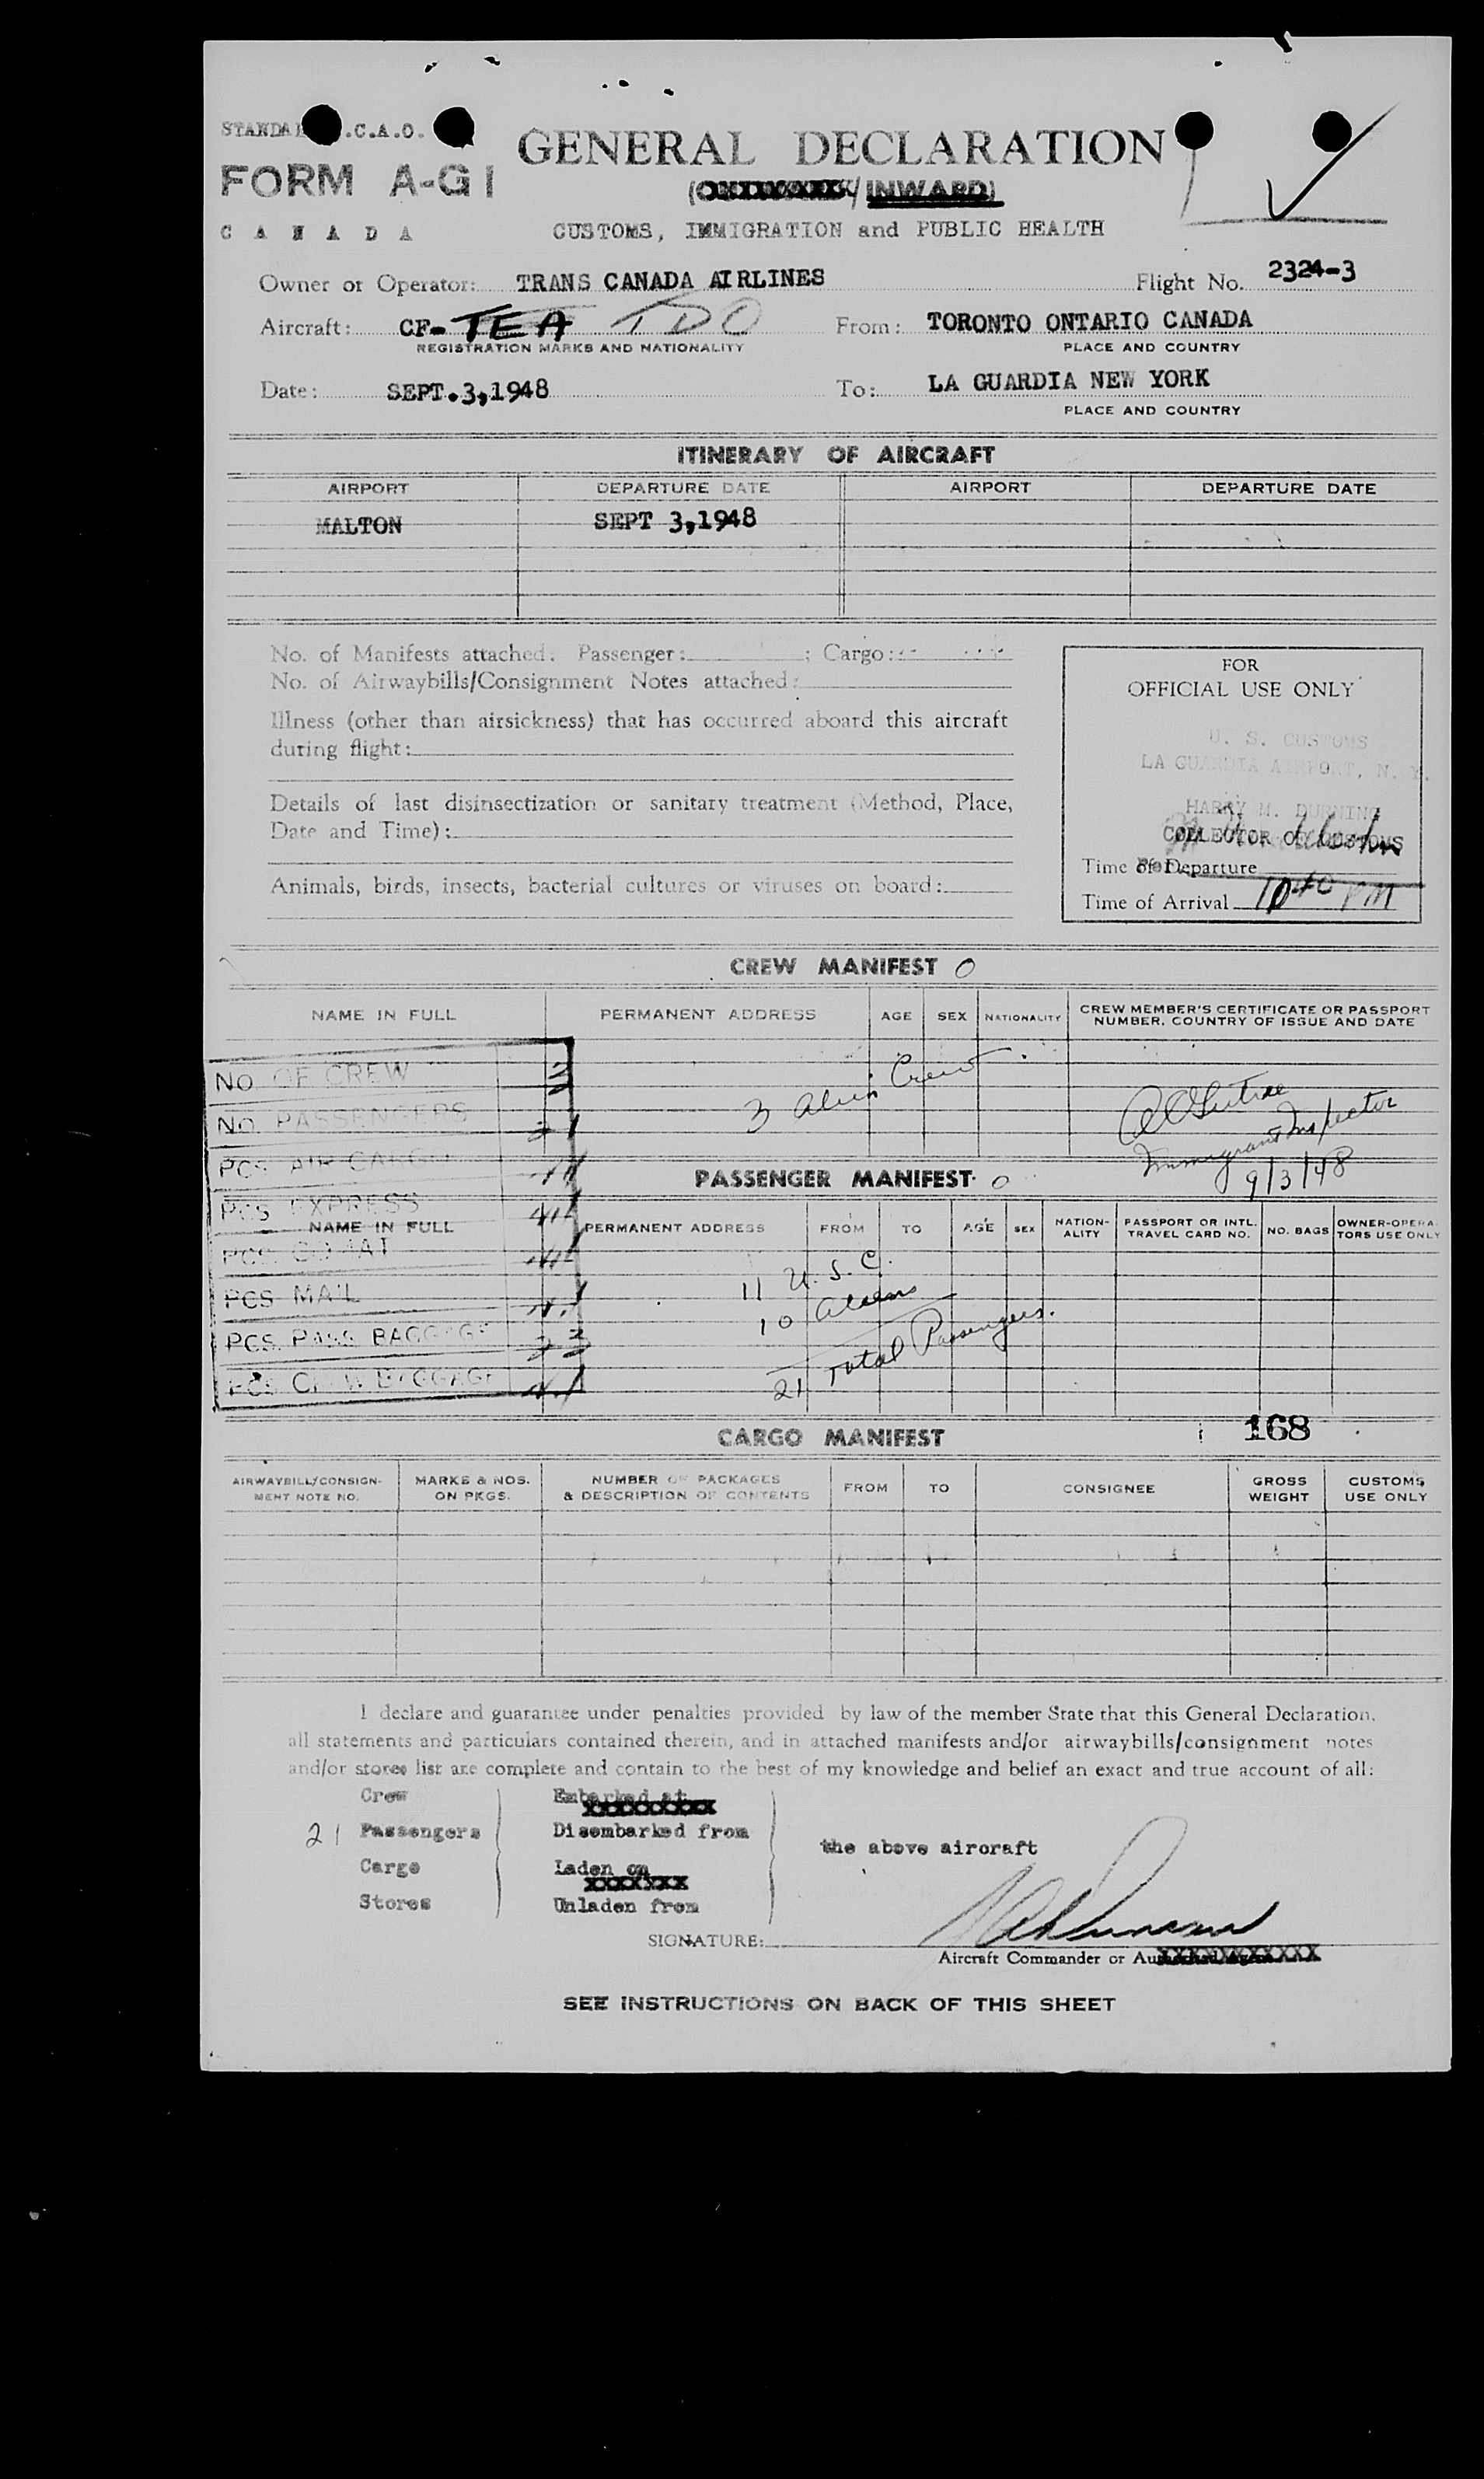 .C.A.O.
FORM A-G1
CANADA
GENERAL DECLARATION
INWARD)
CUSTOMS, IMMIGRATION and PUBLIC HEALTH
Owner or Operator: TRANS CANADA AIRLINES
Flight No. 2324-3
Aircraft: CF-TEA TDO
REGISTRATION MARKS AND NATIONALITY
From: TORONTO ONTARIO CANADA
PLACE AND COUNTRY
Date: SEPT.3,1948
To: LA GUARDIA NEW YORK
PLACE AND COUNTRY
ITINERARY OF AIRCRAFT
AIRPORT DEPARTURE DATE AIRPORT DEPARTURE DATE
MALTON SEPT 3,1948
No. of Manifests attached: Passenger: ; Cargo:
No. of Airwaybills/Consignment Notes attached:
Illness (other than airsickness) that has occurred aboard this aircraft
during flight:
Details of last disinsectization or sanitary treatment (Method, Place,
Date and Time):
Animals, birds, insects, bacterial cultures or viruses on board:
FOR
OFFICIAL USE ONLY
U. S. CUSTOMS
LA GUARDIA AIRPORT, N. Y.
HARRY M. DURNING
COLLECTOR OF CUSTOMS
Time of Departure
Time of Arrival 10 40 PM
CREW MANIFEST
NAME IN FULL PERMANENT ADDRESS AGE SEX NATIONALITY CREW MEMBER'S CERTIFICATE OR PASSPORT
NUMBER, COUNTRY OF ISSUE AND DATE
3 alien Crew
Immigrant Inspector
9/3/48
NO. OF CREW 3
NO. PASSENGERS 21
PCS. AIR CARGO
PCS. EXPRESS
PCS.
PCS. MAIL
PCS. PASS. BAGGAGE
PCS. CREW BAGGAGE
PASSENGER MANIFEST
NAME IN FULL PERMANENT ADDRESS FROM TO AGE SEX NATION-
ALITY PASSPORT OR INTL.
TRAVEL CARD NO. NO. BAGS OWNER-OPERA-
TORS USE ONLY
11 U.S.C.
10 aliens
21 Total Passengers.
168
CARGO MANIFEST
AIRWAYBILL/CONSIGN-
MENT NOTE NO. MARKS & NOS.
ON PKGS. NUMBER OF PACKAGES
& DESCRIPTION OF CONTENTS FROM TO CONSIGNEE GROSS
WEIGHT CUSTOMS
USE ONLY
I declare and guarantee under penalties provided by law of the member State that this General Declaration,
all statements and particulars contained therein, and in attached manifests and/or airwaybills/consignment notes
and/or stores list are complete and contain to the best of my knowledge and belief an exact and true account of all:
Crew Embarked at
21 Passengers Disembarked from
the above aircraft
Cargo Laden on
Stores Unladen from
SIGNATURE:
Aircraft Commander or
SEE INSTRUCTIONS ON BACK OF THIS SHEET